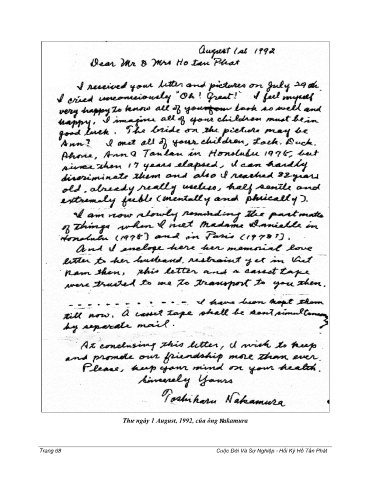 August 1st 1992
Dear Mr & Mrs Ho tan Phat
I received your letter and pictures on July 29th.
I cried unconsciously "Oh! Great!" I feel myself
very happy to know all of your look so well and
happy, I imagine all of your children must be in
good luck. The bride on the picture may be
Ann? I met all of your children, Lach. Duck.
Phone, Ann & Tanlan in Honolulu 1975, but
since then 17 years elapsed, I can hardly
discriminate them and also I reached 82 years
old, already really useless, half senile and
extremaly feeble (mentally and phisically).
I am now slowly reminding the past matte
of things when I met Madame Danielle in
Honolulu (1975) and in Paris (1978?).
And I encloge here her memorial love
letter to her husband, restraint yet in Viet
Nam then, this letter and a casset tape
were trusted to me to transport to you then.
- - - - - - - - - - - I have been kept them
till now. A casset tape shall be sent simul
by seperate mail.
At concluding this letter, I wish to keep
and promote our friendship more than ever.
Please, keep your mind on your health.
Sincerely Yours
Toshiharu Nakamura
Thư ngày 1 August, 1992, của ông Nakamura
Trang 68 Cuộc Đời Và Sự Nghiệp - Hồi Ký Hồ Tấn Phát